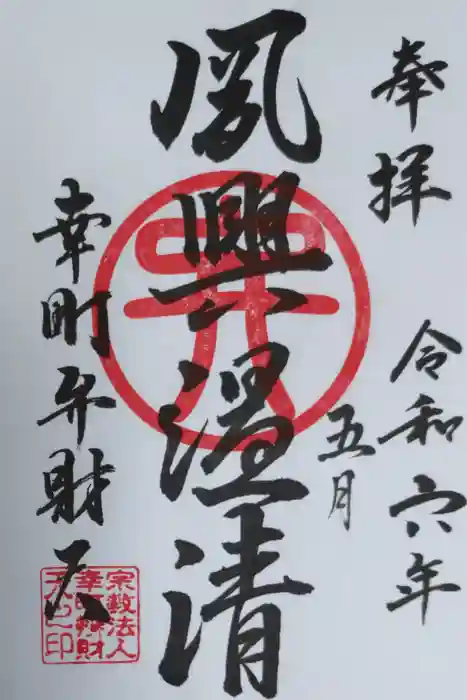 奉拝
令和六年
五月
夙興温清
幸町弁財天
宗教法人
幸町辨財
天之印